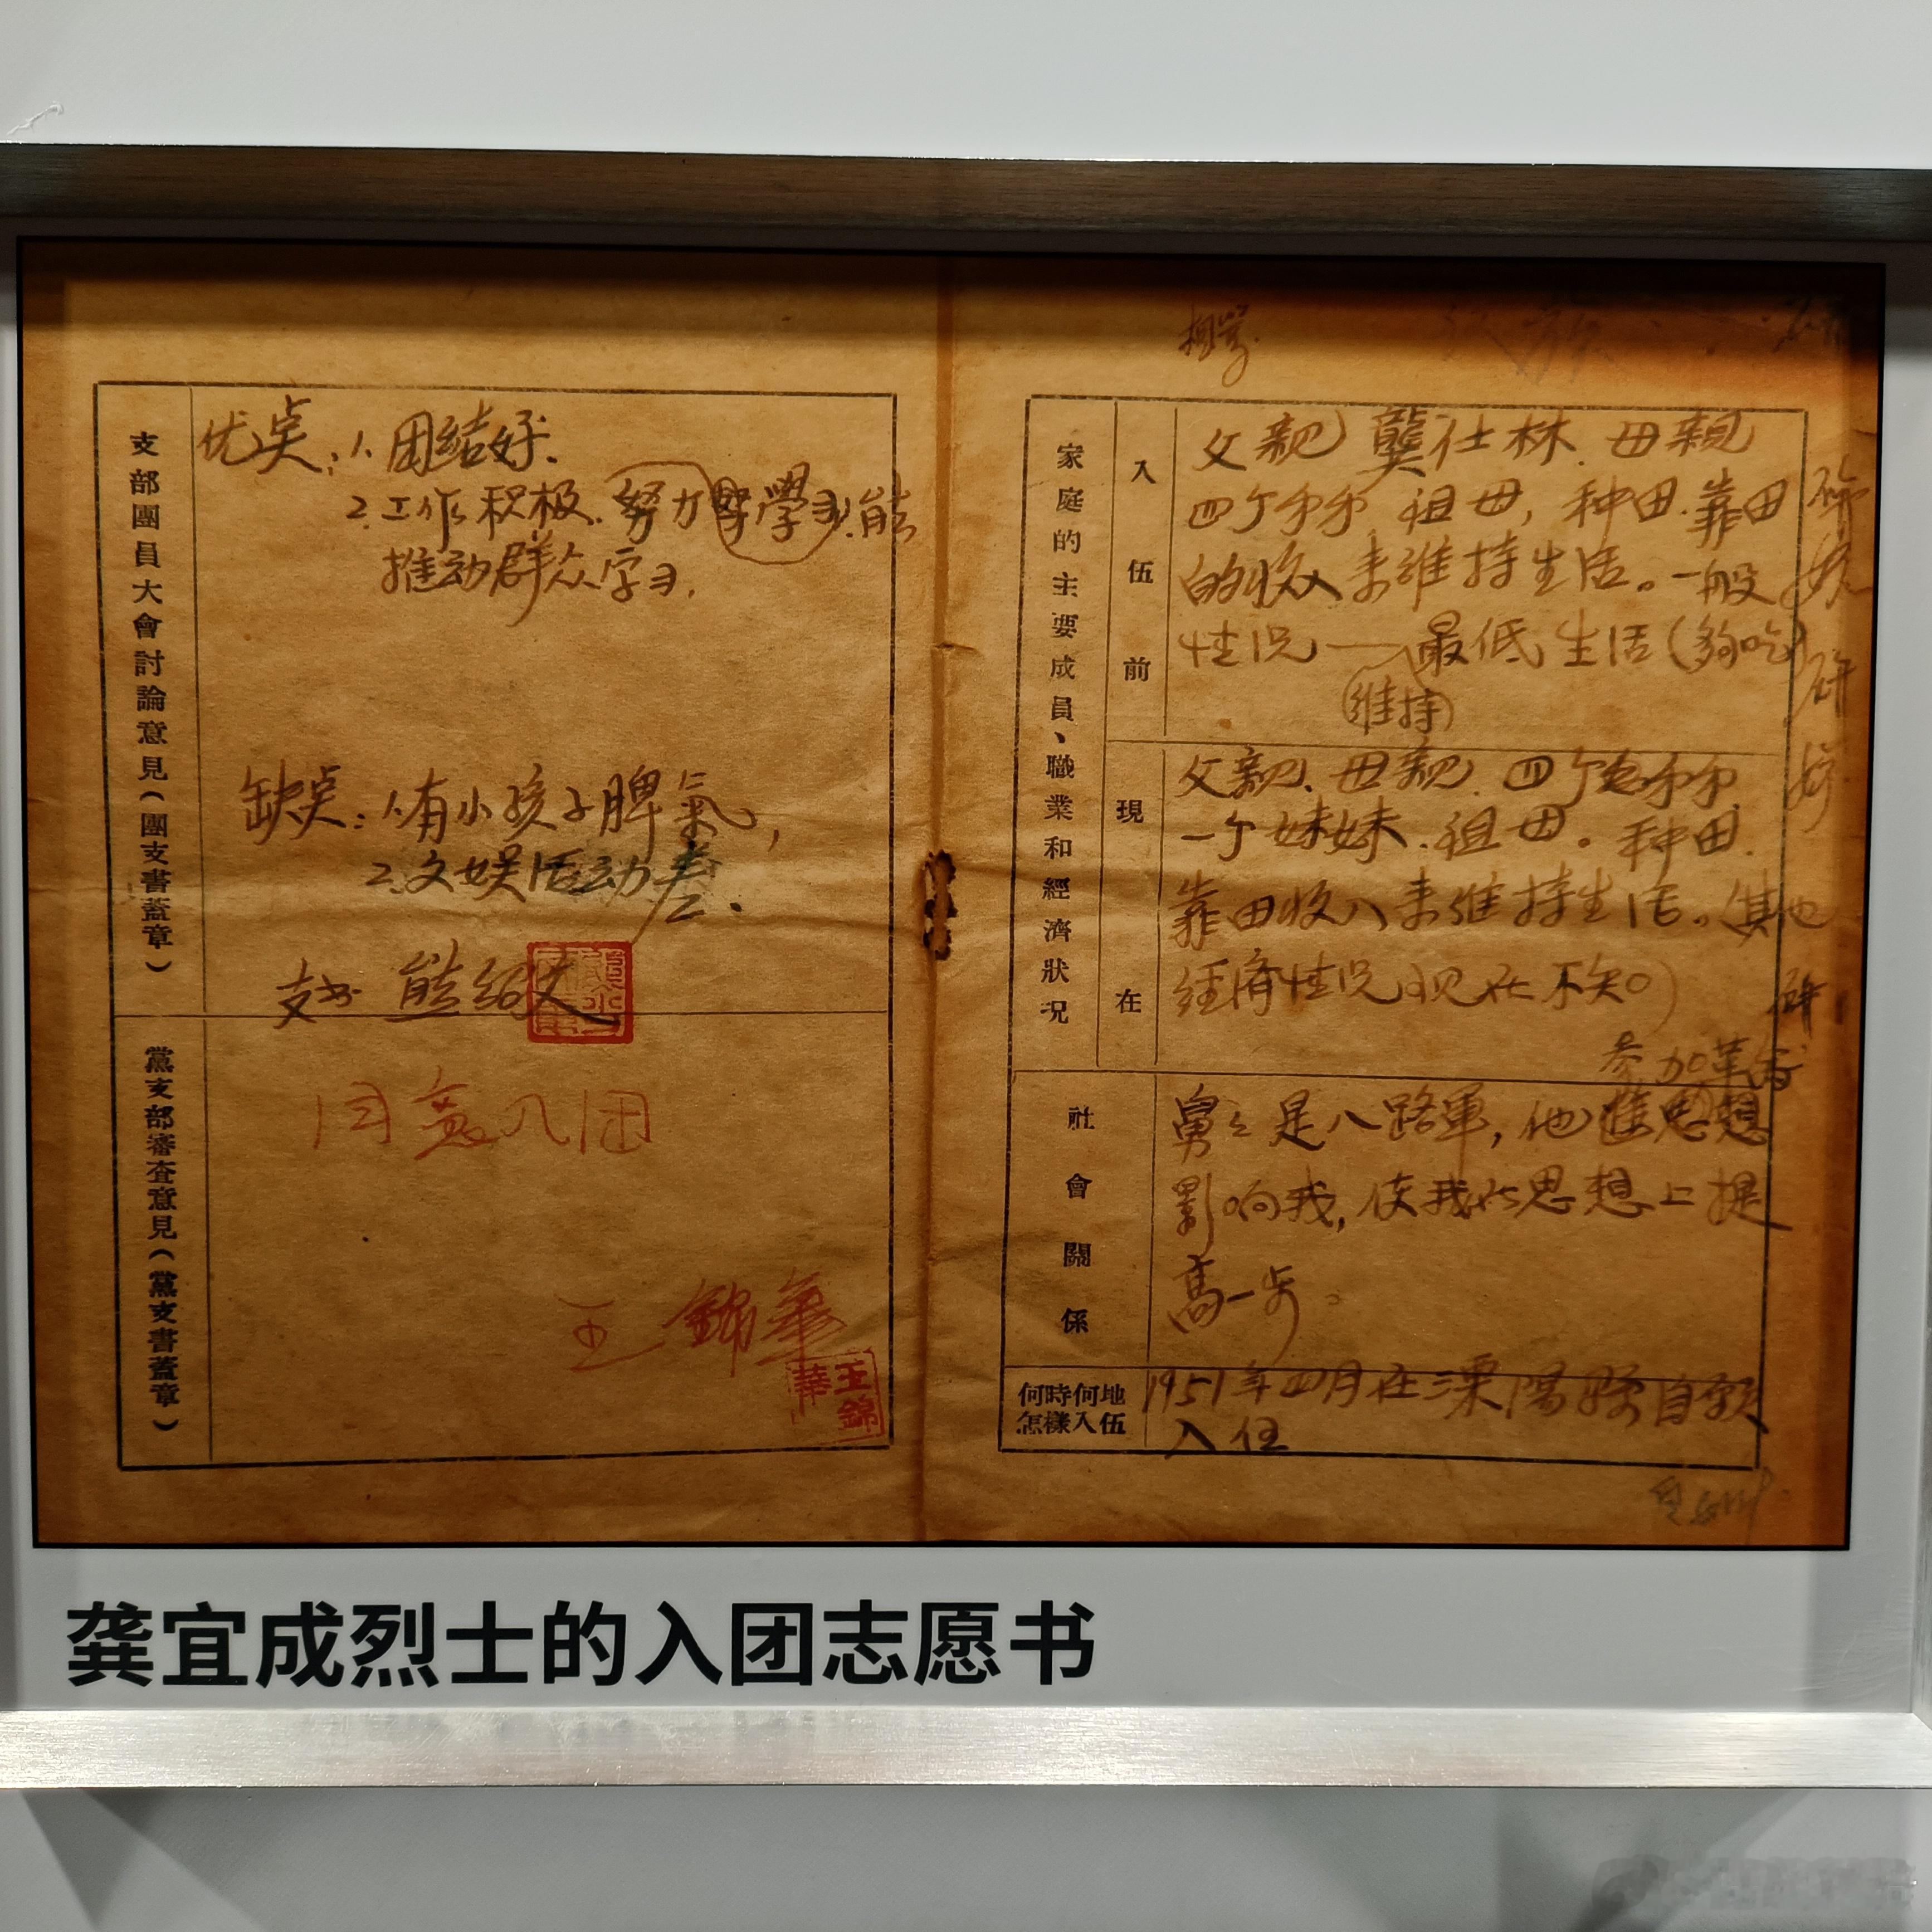 支部團員大會討論意見（團支書蓋章）
优点：1.团结好.
2.工作积极.努力學习.能
推动群众学习.
缺点：1.有小孩子脾氣，
2.文娱活动差.
支书 熊绍文
黨支部審查意見（黨支書蓋章）
同意入团
王錦華
王錦華
家庭的主要成員、職業和經濟狀况
入伍前
父親 龔仕林.母親
四个弟弟 祖母，种田.靠田
的收入来維持生活。一般
性况 最低生活（夠吃）
維持
現在
父親.母親.四个弟弟.
一个妹妹.祖母。种田.
靠田收入来維持生活。其他
经济性况现在不知。
社會關係
参加革命
舅々是八路軍，他進思想
影响我，使我的思想上提
高一步。
何時何地
怎樣入伍
1951年四月在溧陽縣自愿
入伍
龚宜成烈士的入团志愿书